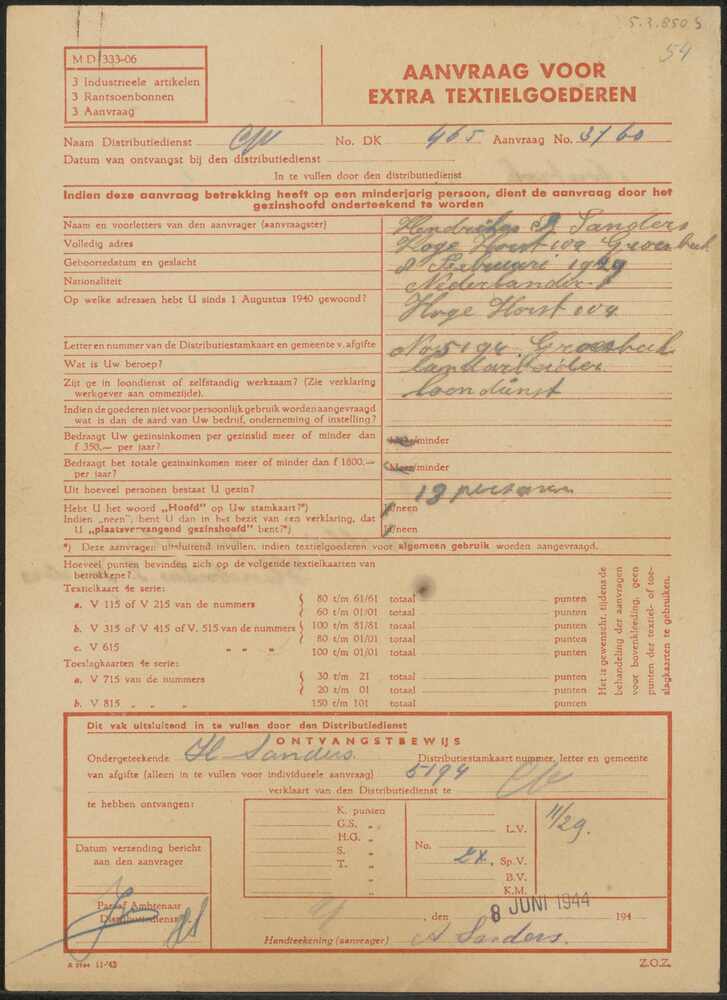 5.3.850 S
54
M D 333-06
3 Industrieele artikelen
3 Rantsoenbonnen
3 Aanvraag
AANVRAAG VOOR
EXTRA TEXTIELGOEDEREN
Naam Distributiedienst No. DK 465 Aanvraag No. 3760
Datum van ontvangst bij den distributiedienst
In te vullen door den distributiedienst
Indien deze aanvraag betrekking heeft op een minderjarig persoon, dient de aanvraag door het
gezinshoofd onderteekend te worden
Naam en voorletters van den aanvrager (aanvraagster) Hendrikus Sanders
Volledig adres Hoge Horst 109 Groesbeek
Geboortedatum en geslacht 8 Februari 1929
Nationaliteit Nederlander
Op welke adressen hebt U sinds 1 Augustus 1940 gewoond? Hoge Horst 109
Letter en nummer van de Distributiestamkaart en gemeente v. afgifte No 5194 Groesbeek
Wat is Uw beroep? landarbeider
Zijt ge in loondienst of zelfstandig werkzaam? (Zie verklaring
werkgever aan ommezijde). loondienst
Indien de goederen niet voor persoonlijk gebruik worden aangevraagd
wat is dan de aard van Uw bedrijf, onderneming of instelling?
Bedraagt Uw gezinsinkomen per gezinslid meer of minder dan
f 350,— per jaar? Meer/minder
Bedraagt het totale gezinsinkomen meer of minder dan f 1800.—
per jaar? Meer/minder
Uit hoeveel personen bestaat U gezin? 13 personen
Hebt U het woord „Hoofd” op Uw stamkaart?*) ja/neen
Indien „neen”, bent U dan in het bezit van een verklaring, dat
U „plaatsvervangend gezinshoofd” bent?*) ja/neen
*) Deze aanvragen uitsluitend invullen, indien textielgoederen voor algemeen gebruik worden aangevraagd.
Hoeveel punten bevinden zich op de volgende textielkaarten van
betrokkene?
Textielkaart 4e serie:
a. V 115 of V 215 van de nummers 80 t/m 61/61 totaal punten
60 t/m 01/01 totaal punten
b. V 315 of V 415 of V. 515 van de nummers 100 t/m 81/81 totaal punten
80 t/m 01/01 totaal punten
c. V 615 „ „ „ 100 t/m 01/01 totaal punten
Toeslagkaarten 4e serie:
a. V 715 van de nummers 30 t/m 21 totaal punten
20 t/m 01 totaal punten
b. V 815 „ „ „ 150 t/m 101 totaal punten
Het is gewenscht, tijdens de
behandeling der aanvragen
voor bovenkleeding, geen
punten der textiel- of toe-
slagkaarten te gebruiken.
Dit vak uitsluitend in te vullen door den Distributiedienst
ONTVANGSTBEWIJS
Ondergeteekende H Sanders Distributiestamkaart nummer, letter en gemeente
van afgifte (alleen in te vullen voor individueele aanvraag) 5194
verklaart van den Distributiedienst te
te hebben ontvangen:
K. punten
G.S. „
H.G. „
S. „
T. „
No.
L.V.
2x, Sp.V.
B.V.
K.M.
11/29.
Datum verzending bericht
aan den aanvrager
Paraaf Ambtenaar
Distributiedienst
, den 8 JUNI 1944 194
Handteekening (aanvrager) A Sanders.
A 2944 11-'43
Z.O.Z.